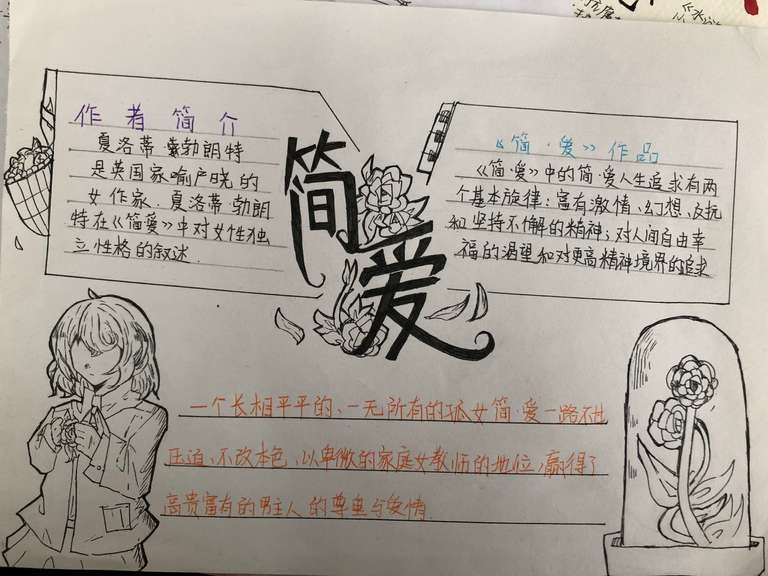 作者简介
夏洛蒂·勃朗特
是英国家喻户晓的
女作家.夏洛蒂·勃朗
特在《简爱》中对女性独
立性格的叙述.
简
爱
《简·爱》作品
《简·爱》中的简·爱人生追求有两
个基本旋律：富有激情、幻想、反抗
和坚持不懈的精神；对人间自由幸
福的渴望和对更高精神境界的追求
一个长相平平的、一无所有的孤女简·爱一路不出
压迫、不改本色、以卑微的家庭女教师的地位,赢得了
高贵富有的男主人的尊重与爱情.